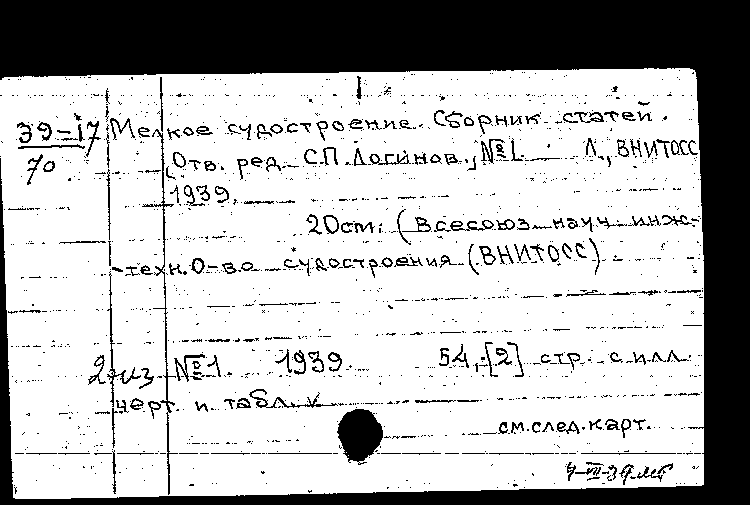 39-17 Мелкое судостроение. Сборник статей.
70 Отв. ред. С.П. Логинов., №1. Л., ВНИТОСС
1939.
20cm. (Всесоюз. науч. инж.-
-техн. О-во судостроения (ВНИТОСС).
2 экз №1. 1939. 54, [2] стр. с илл.
черт. и табл. v
см. след. карт.